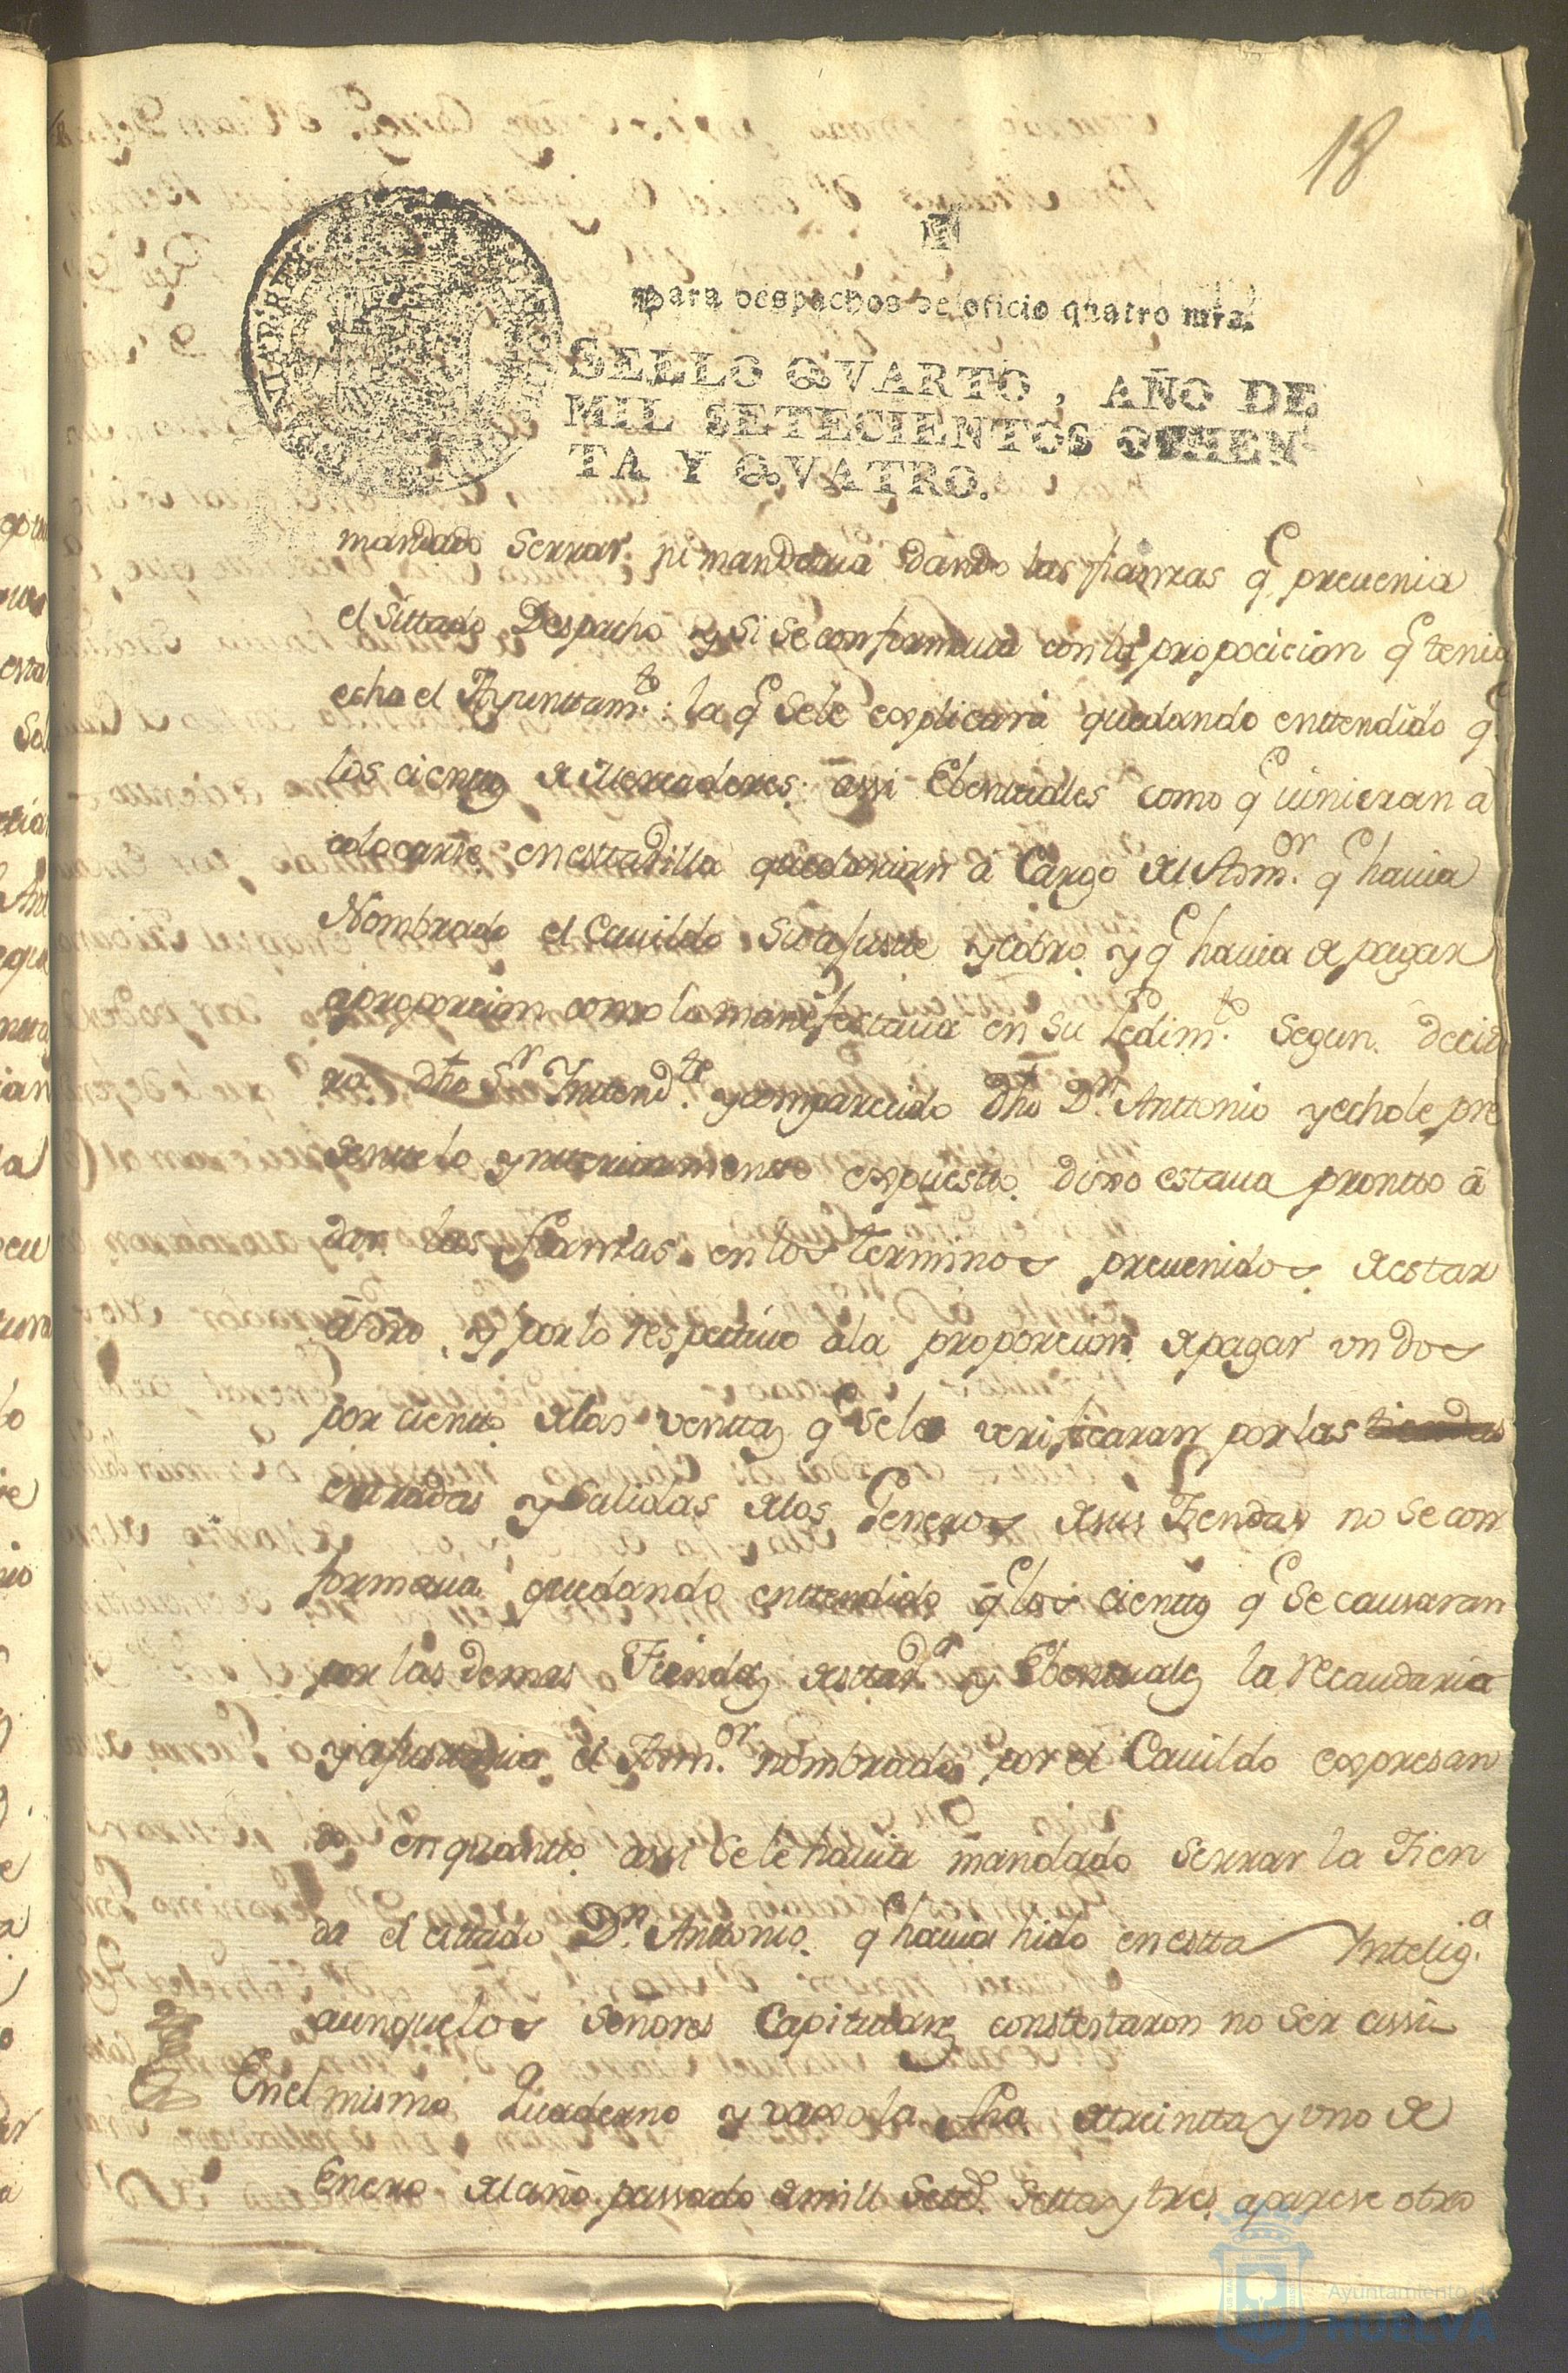 18
para despachos de oficio quatro mrs.
SELLO QVARTO, AÑO DE
MIL SETECIENTOS OCHEN
TA Y QVATRO.
mandado Serrar ni mandaria dando las fianzas q.e preuenia
el Sittado Despacho y si se conformaua con la propocicion q.e tenia
echa el Ayunttam.to: la q.e Sele explicara quedando enttendido q.e
los cientos de Mercaderes assi Ebentuales como q.e uinieran a
colocarse en estta Villa quedarian a Cargo del Adm.or q.e hauia
Nombrado el Cauildo Su ajustte y cobro y q.e hauia de pagar
a proporcion como lo manifestaua en Su Pedim.to Segun decia
dho S.r Inttend.te y comparecido dho D.n Anttonio y echole pre
sentte lo antteriormentte expuestto dixo estaua prontto á
dar las fianzas en los terminos preuenidos de estar
a dro y por lo respectiuo a la proporcion de pagar un dos
por cientto de las venttas q.e se le verificaran por las tiendas
entradas y Salidas de los Generos de sus Tiendas no se con
formaua quedando enttendido q.e los cienttos q.e Se causaran
por las demas Tiendas de esta V.a y Ebentuales la recaudaria
y ajustaria el Adm.or nombrado por el Cauildo expresan
do en quantto assi se le hauia mandado Serrar la Tien
da el cittado D.n Anttonio q.e hauia hido en estta Intelig.a
aunque los Señores Capitulares conttestaron no Ser assi
En el mismo Quaderno y vaxo la fha de treintta y uno de
Enero del año passado de mill Setec.s Setta y tres aparese otro
Ayuntamiento de
HUELVA